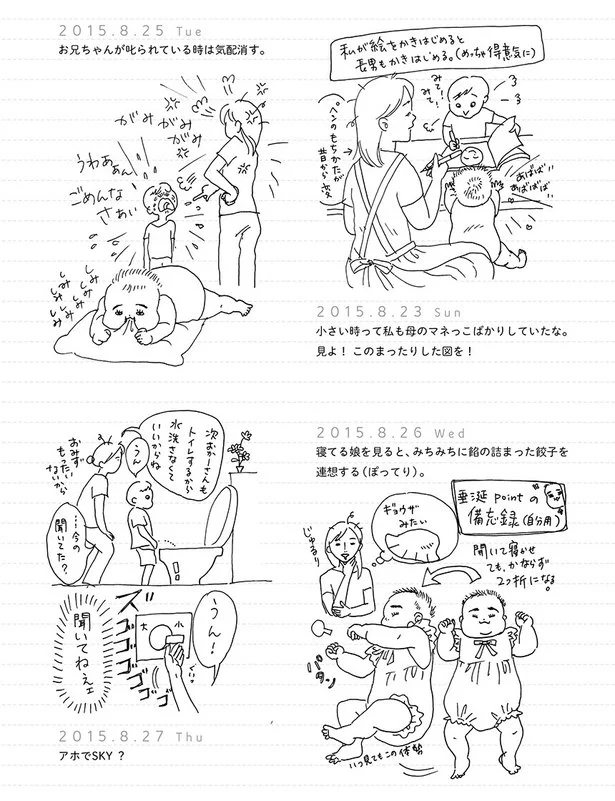 2015.8.25 Tue
お兄ちゃんが叱られている時は気配消す。
がみ
がみ
がみ
うわぁぁん
ごめんな
さぁい
しみ
しみ
しみ
しみ
しみ
しみ
私が絵をかきはじめると
長男もかきはじめる。(めっちゃ得意気に)
みて!
みて!
ペンのもちかたが
昔から変
あばばば
あばばば!
2015.8.23 Sun
小さい時って私も母のマネっこばかりしていたな。
見よ! このまったりした図を!
次おかーさんも
トイレするから
水洗さなくて
いいからね
うん
おみず
もったい
ないから
…今の
聞いてた?
うん!
大 小
ぐいっ
ズゴゴゴゴゴ
聞いてねぇェ
2015.8.27 Thu
アホでSKY ?
2015.8.26 Wed
寝てる娘を見ると、みちみちに餡の詰まった餃子を
連想する(ぽってり)。
垂涎pointの
備忘録(自分用)
ギョウザ
みたい
じゅるり
開いて寝かせ
ても、かならず
2つ折になる。
パタン
いつ見てもこの体勢